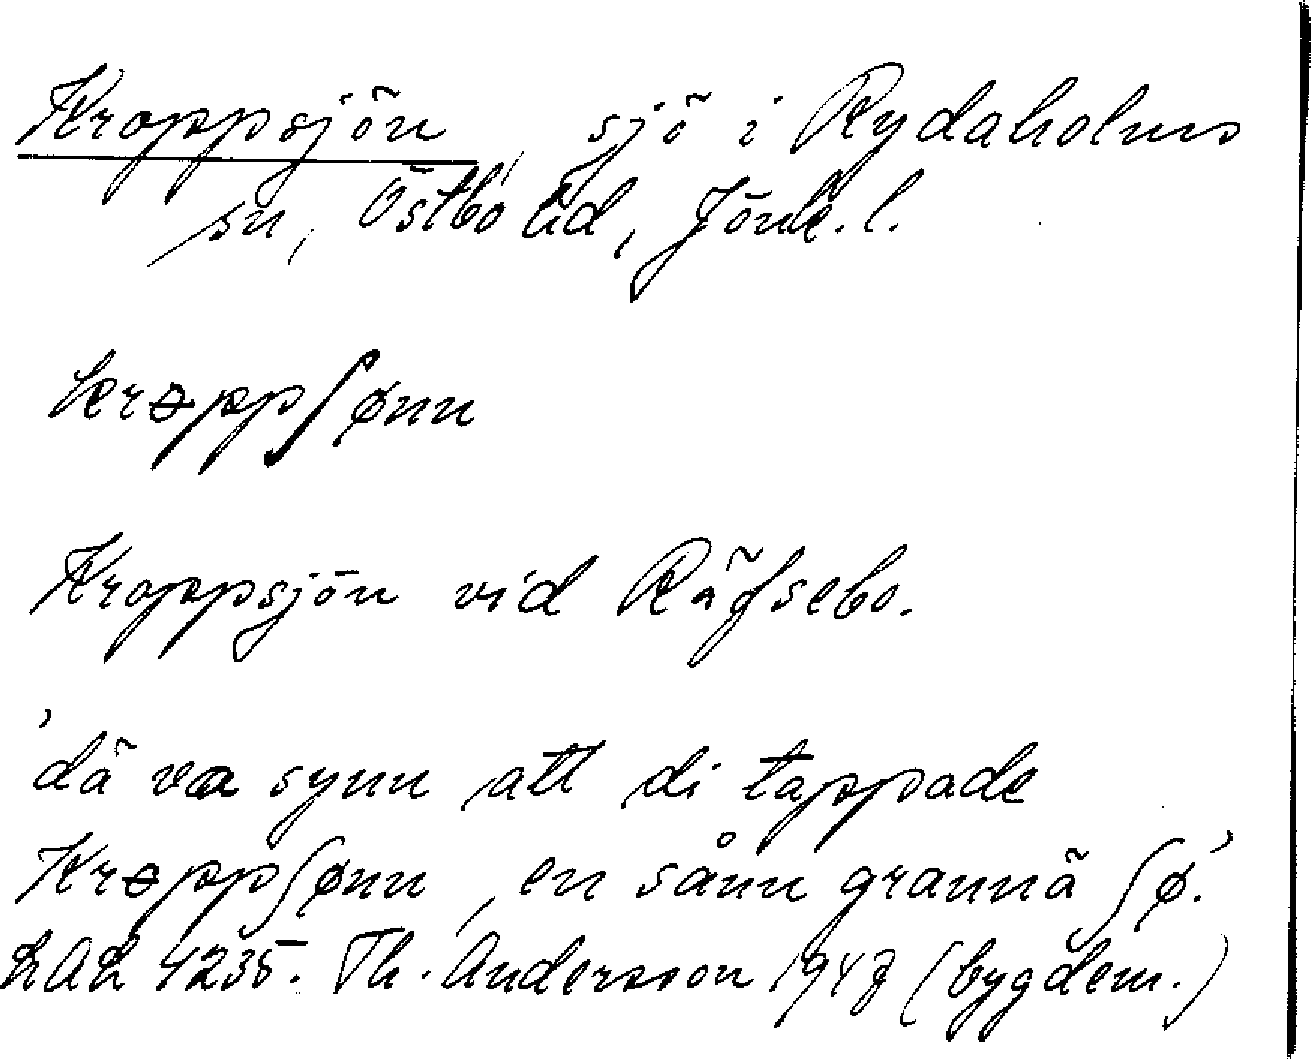 Kroppsjön, sjö i Rydaholms
sn, Östbo hd, Jönk. l.
krɵppʃønn
Kroppsjön vid Räfsebo.
'dä va synn att di tappade
Krɵppʃønn, en sånn grannä ʃø.'
LAL 4235. Th. Andersson 1947 (bygdem.)